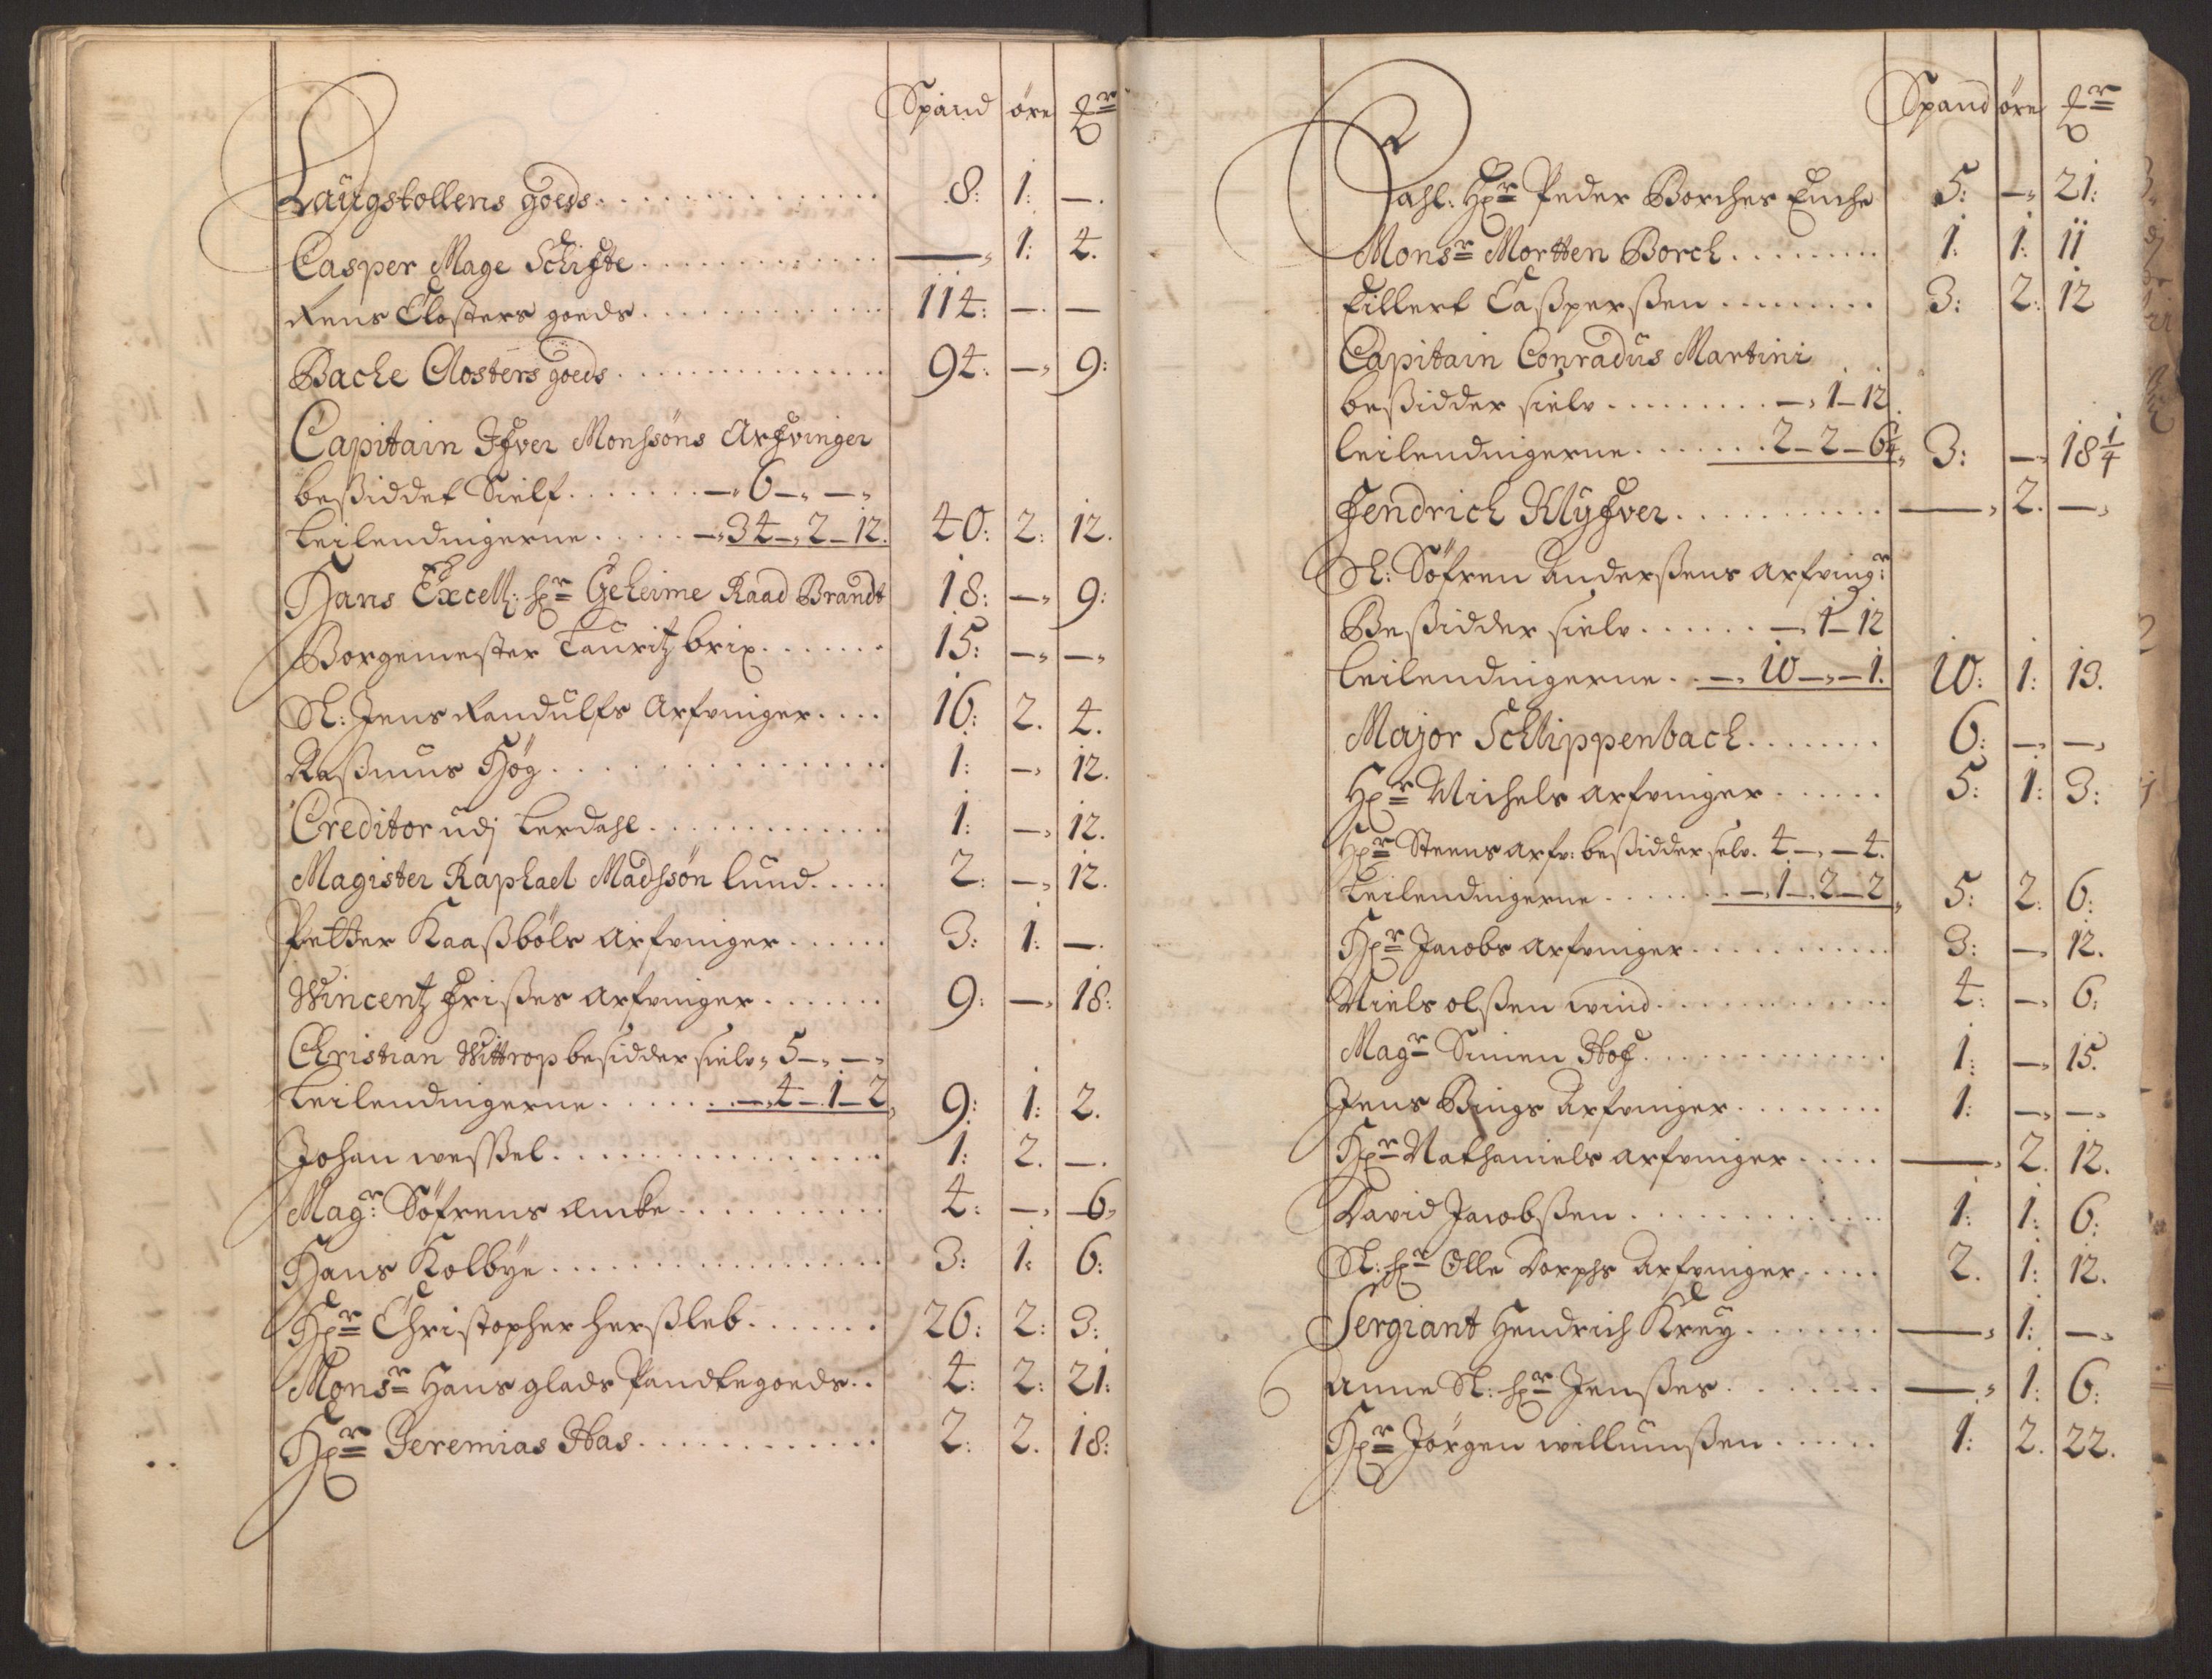 Spand öre
Laugstollens goeds . . . 8: 1: —.
Casper Mage Schifte . . . —, 1: 4.
Rens Closters goeds . . . 114: —. —
Bache Closters goeds . . . 94: —, 9:
Capitain Ifver Monssöns Arfvinger
beßiddet Sielf . . . —, 6 —, —,
Leilendingerne . . . —, 34 —, 2 — 12. 40: 2: 12.
Hans Excell: Hr Geheime Raad Brandt 18: —, 9:
Borgemester Lauritz brix . . . 15: —, —,
Sl: Jens Randulfs Arfvinger . . . 16: 2. 4.
Raßmus Hög . . . 1: —, 12.
Creditor udj Lerdahl . . . 1: —, 12.
Magister Raphael Madssön lund . . . 2: —, 12.
Petter Kaaßböls Arfvinger . . . 3: 1: —.
Wincentz Frißes Arfvinger . . . 9: —, 18:
Christian Wittrop besidder sielv, 5 —, —,
Leilendingerne . . . —, 4 — 1 — 2, 9: 1: 2.
Johan wessel . . . 1: 2. —.
Magr: Söfrens Encke . . . 4: —, 6,
Hans Kolbye . . . 3: 1: 6:
Hr Christopher herßleb . . . 26: 2: 3:
Monsr Hans glads Pandtegoeds . . 4: 2: 21:
Hr Jeremias Has . . . 2: 2. 18:
Spand öre
Sahl: Hr Peder Borches Enche 5: —, 21:
Monsr Mortten Borch . . . 1: 1: 11
Eillert Caßperßen . . . 3: 2: 12
Capitain Conradus Martini
beßidder sielv . . . —, 1 — 12.
leilendingerne . . . 2 — 2 — 6¼, 3: —, 18¼
Fendrich Klyfver . . . —, 2. —,
Sl: Söfren Anderßens arfvingr:
Beßidder sielv . . . —, 1 — 12
leilendingerne . . —, 10 —, — 1. 10: 1: 13.
Major Schlippenbach . . . 6: —, —,
Hr Michels arfvinger . . . 5: 1: 3:
Hr Steens arfv: beßidder selv. 4 —, — 4.
Leilendingerne . . . —, 1 — 2 — 2, 5: 2: 6:
Hr Jacobs arfvinger . . . 3: —, 12.
Niels olßen wind . . . 4: —, 6:
Magr Simen Hof . . . 1: —, 15.
Jens Bings Arfvinger . . . 1: —, —,
Hr Nathaniels arfvinger . . . —, 2. 12.
David Jacobßen . . . 1: 1: 6:
Sl: Hr Olle Dorphs Arfvinger . . . 2. 1: 12.
Sergiant Hendrich Krey . . . —, 1: —,
Anne Sl: Hr Jenßes . . . —, 1: 6:
Hr Jörgen willumßen . . . 1: 2. 22.